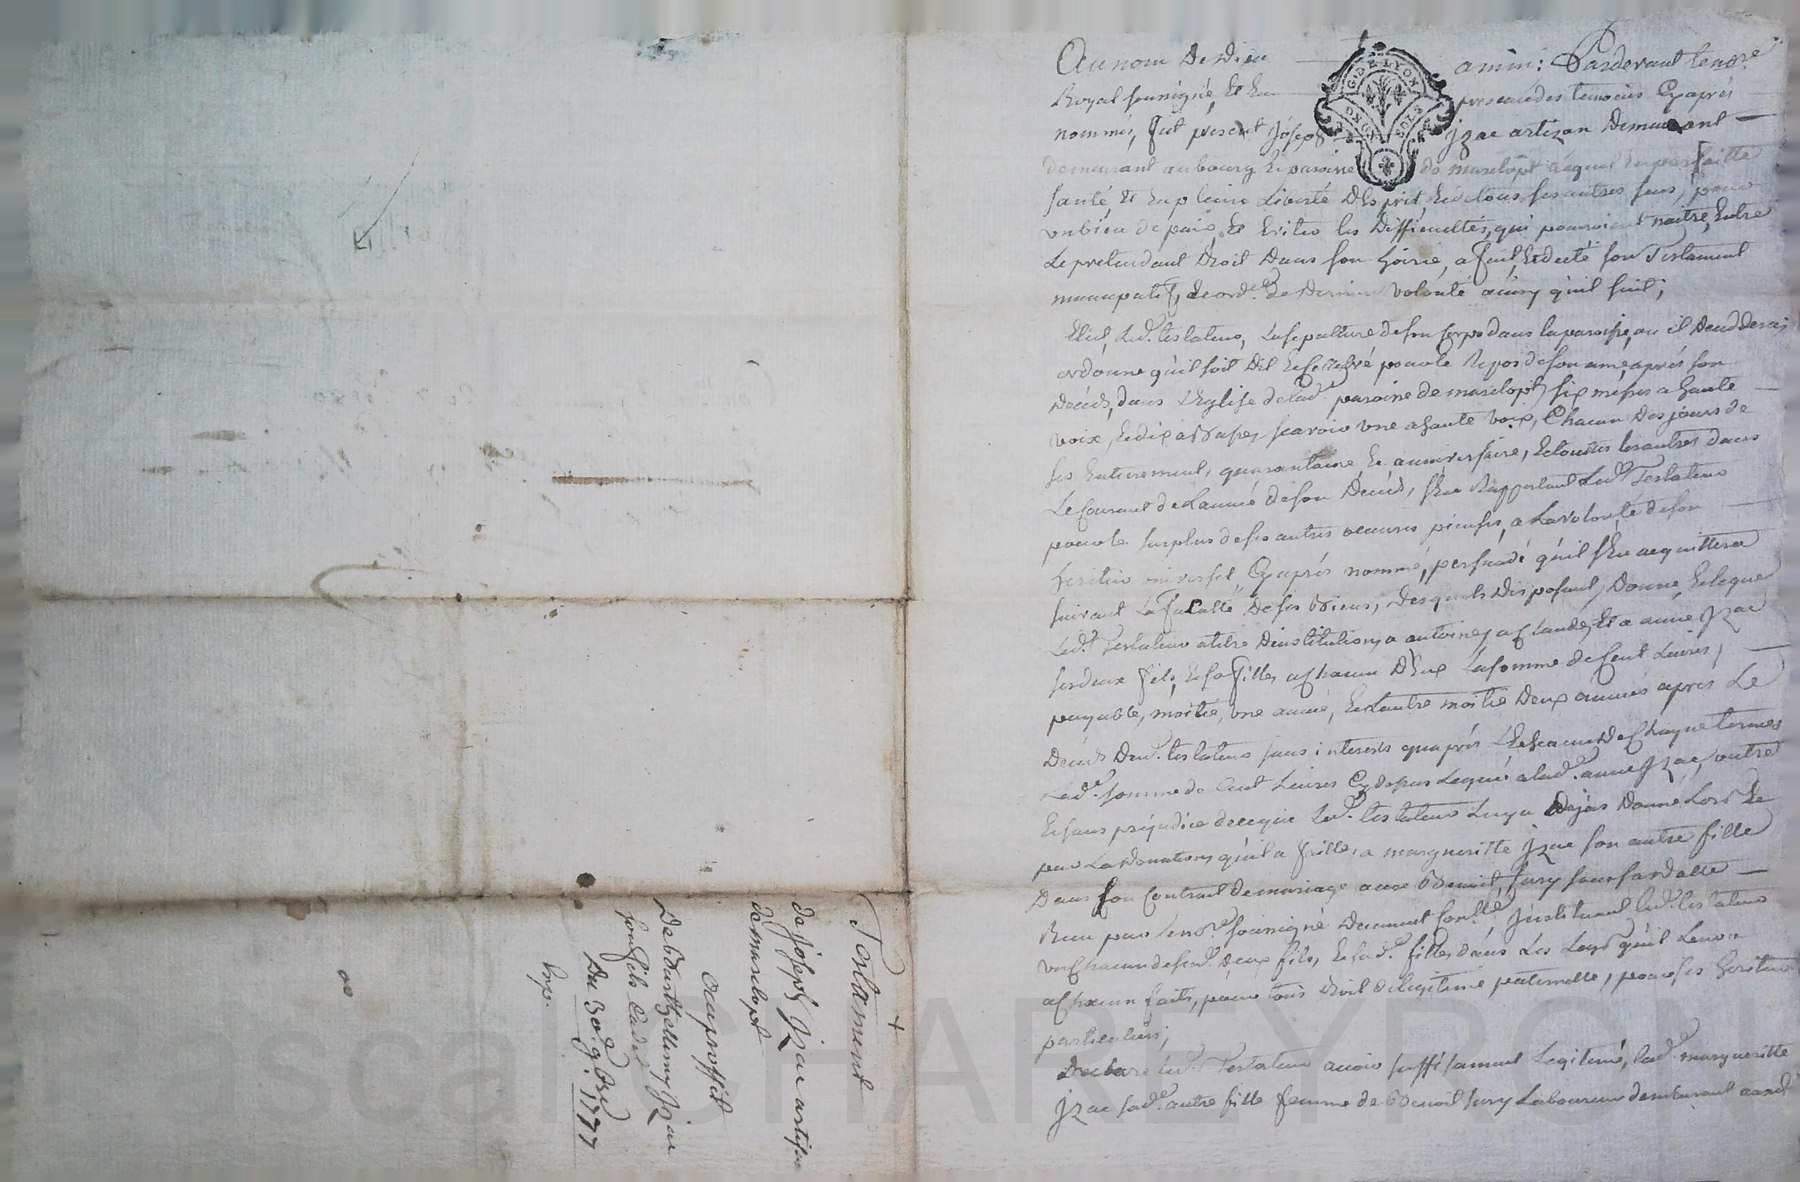 Au nom de Dieu amen: Pardevant le no.re
Royal sousigné, et en presence des temoins Cyaprés
nommés, fut present Joseph Jzac artizan demeurant
demeurant au bourg et paroisse de marclopt lequel en parfaitte
santé, et en pleine Liberté d'Esprit, et de tous ses autres sens, pour
un bien de paix, et Eviter les difficultés, qui pouroient naitre, Entre
Le pretendant droit dans son hoirie, a fait et dicté son Testament
nuncupatif, et ord.re de derniere volonté ainsy qu'il suit;
Elit, Led.t testateur, La sepulture de son corps dans la paroisse, ou il decedderais
ordonne qu'il soit dit et cellebré pour le Repos de son ame, aprés son
Décéd, dans L'Eglise de lad.e paroisse de marclopt six messes a haute
voix, et dix a basses, scavoir une a haute voix, Chacun des jours de
ses Enterement, quarantaine, et anniversaire, et touttes les autres dans
Le Courant de L'année de son Decéd, s'En Rapportant Led.t Testateur
pour le surplus de ses autres oeuvres pieuses, a La volonté de son
heritier universel, Cyaprés nommé, persuadé qu'il s'En acquittera
suivant La Faculté de ses biens, desquels disposant, Donne, et Legue
Led.t Testateur a titre d'institution, a antoine, a Claude, et a anne Jzac
ses deux fils, et sa fille, a Chacun d'Eux La somme de Cent Livres,
payable, moitié, une année, et L'autre moitié deux années aprés Le
Decéd dud.t testateur sans interets qu'aprés L'Echeance de Chaque termes
Lad.e somme de Cent Livres Cydessus Leguée a lad.e anne Jzac, outre
Et sans prejudice de ce que Led.t testateur Luy a dejas Donné Lors de
par La Donation qu'il a faitte, a margueritte Jzac son autre fille
Dans son Contrat de mariage avec Benoit Jury sous sa datte
Reçu par Le no.re sousigné Jnstituant Led.t testateur
un Chacun de sesd.t deux fils, et sad.e fille, dans Les Legs qu'il Leur a
a Chacun faits, pour tous droit de Legitime paternelle, pour ses heritiers
particuliers;
Declare Led.t Testateur avoir suffisament Legitimé, lad.e margueritte
Jzac sad.e autre fille femme de Benoit Jury Laboureur demeurant
G.D E LYON
SOLS
Testament
de joseph Jzac artisan
de marclopt
au proffit
De Barthellemy Jzac
son fils Cadet
Du 30.e 9.bre 1777
Exp.